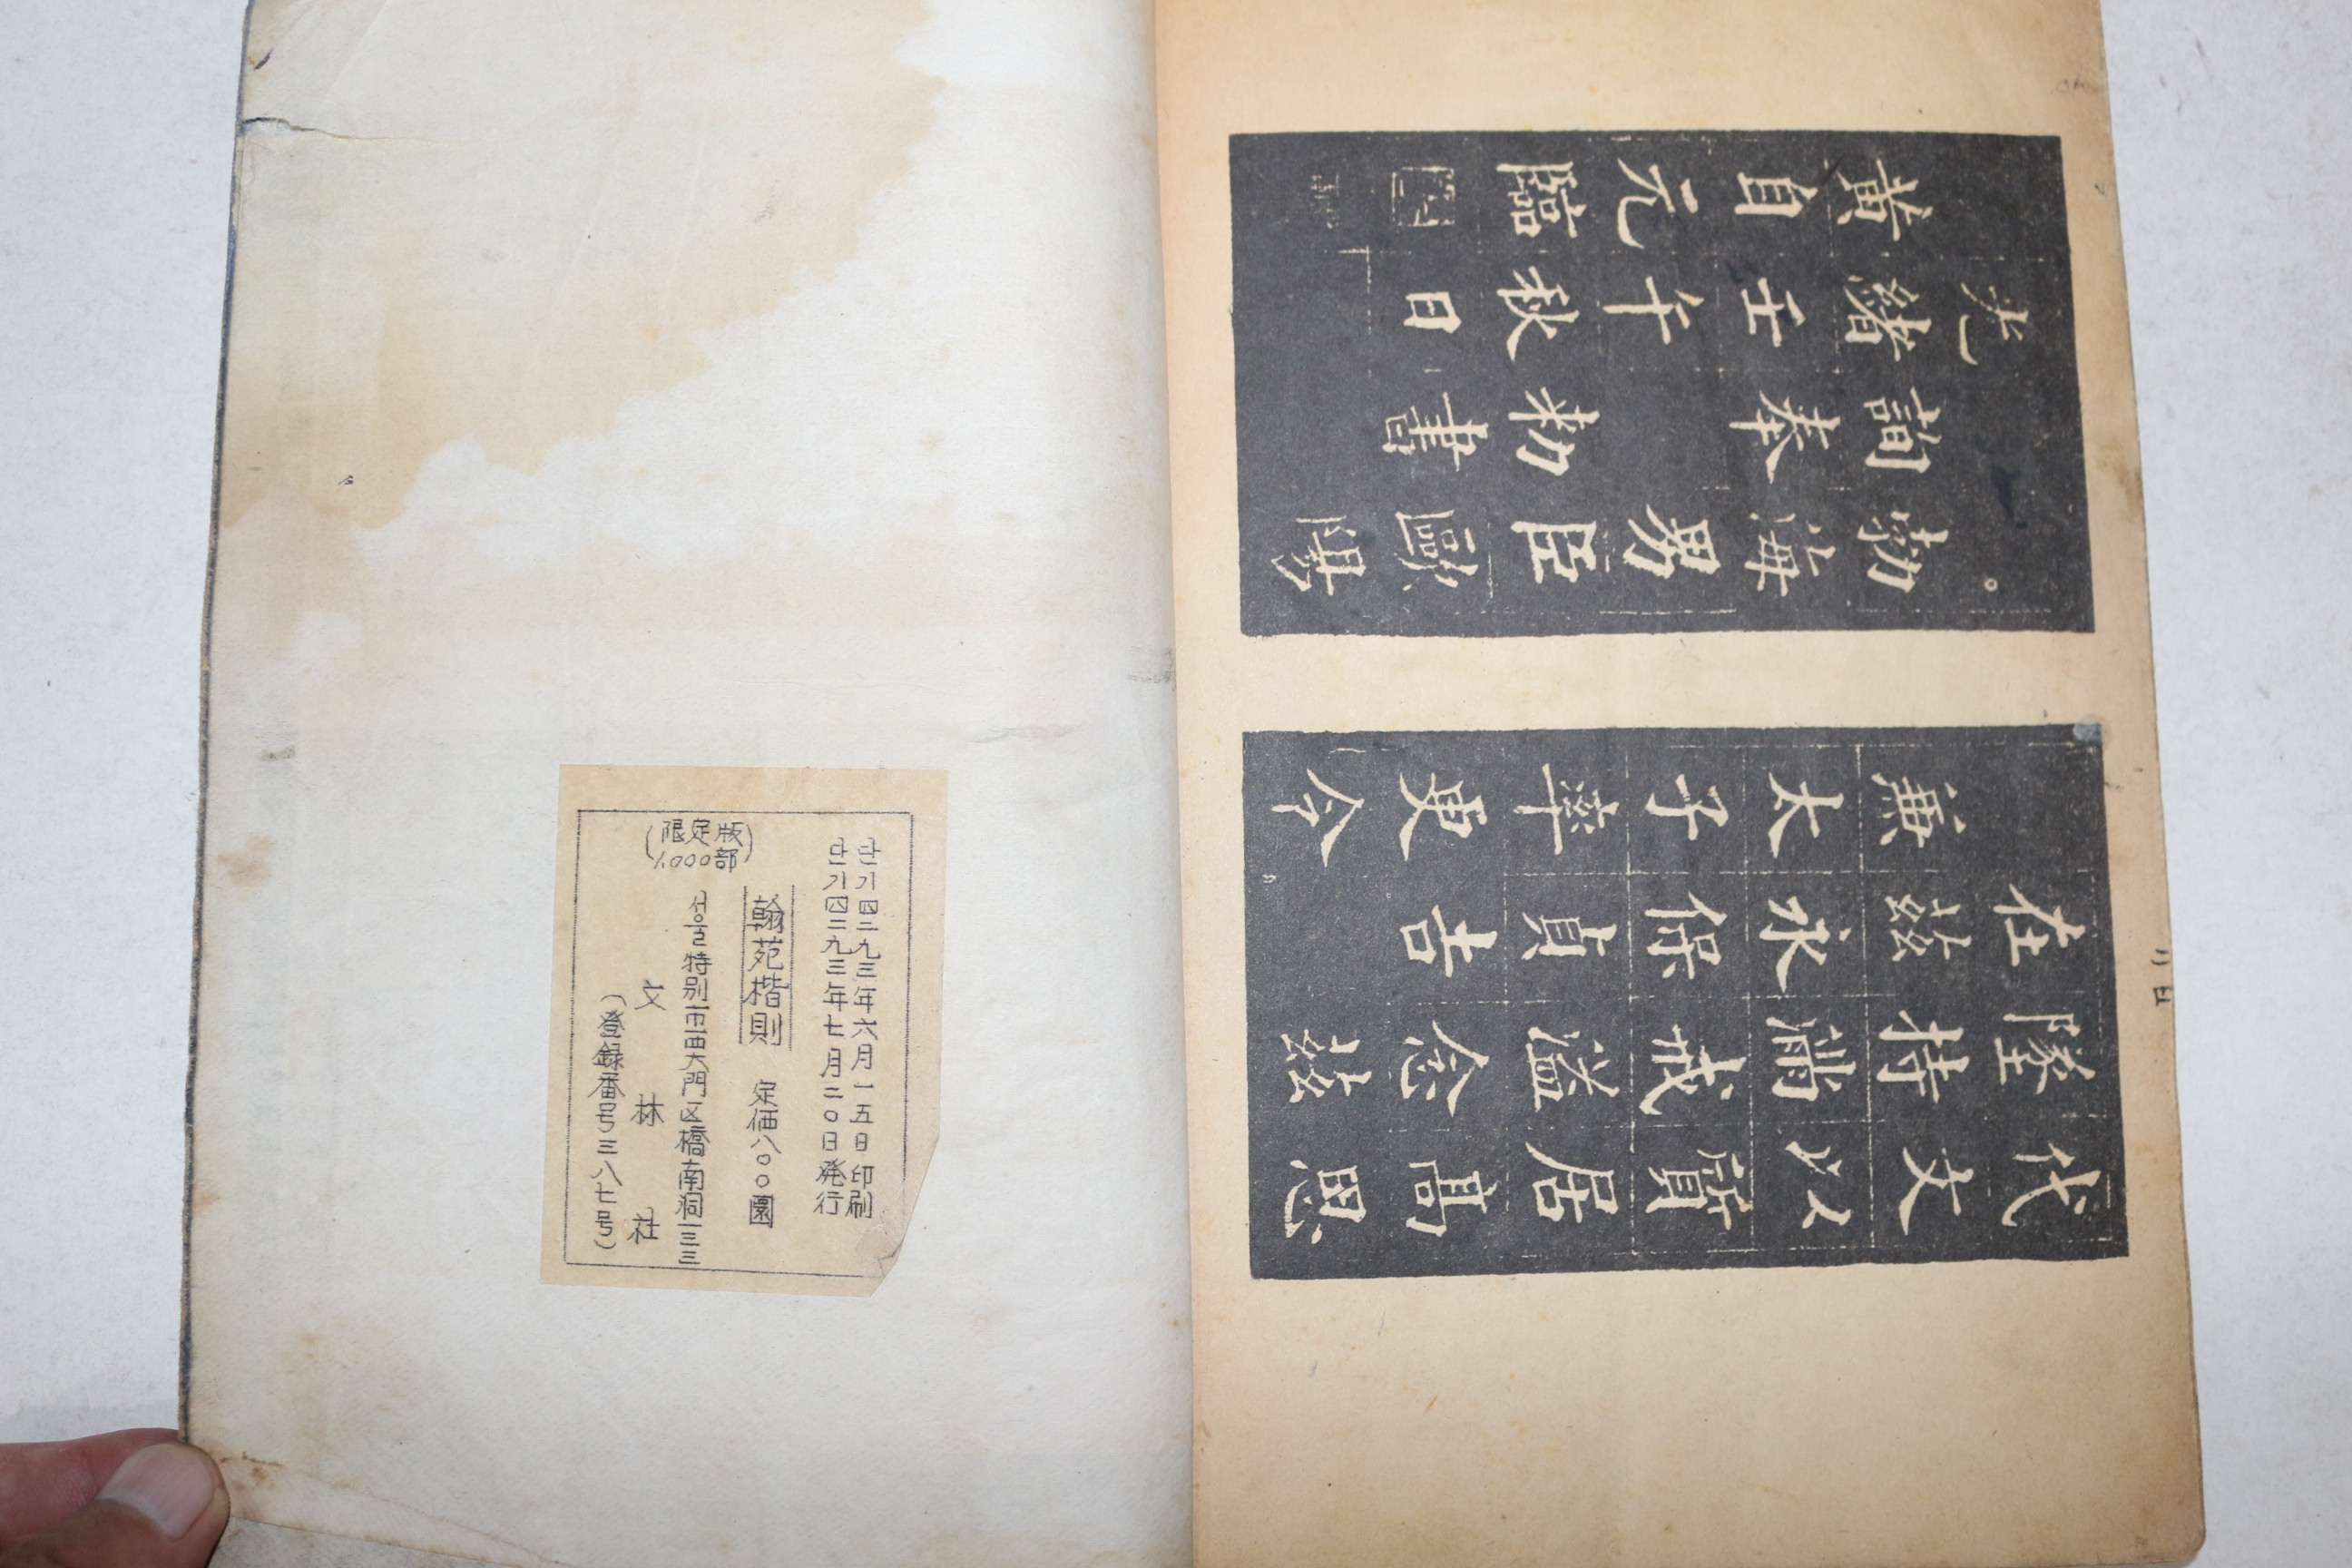 代文以質居高思
墜持滿戒溢念茲
在茲永保貞吉
兼太子率更令
勃海男臣歐陽
詢奉勑書
光緒壬午秋日
黃自元臨
단기四二九三年六月一五日 印刷
단기四二九三年七月二〇日 発行
翰苑楷則 定価八〇〇圜
(限定版
1,000部)
서울特別市西大門区橋南洞一三三
文林社
(登録番号三八七号)